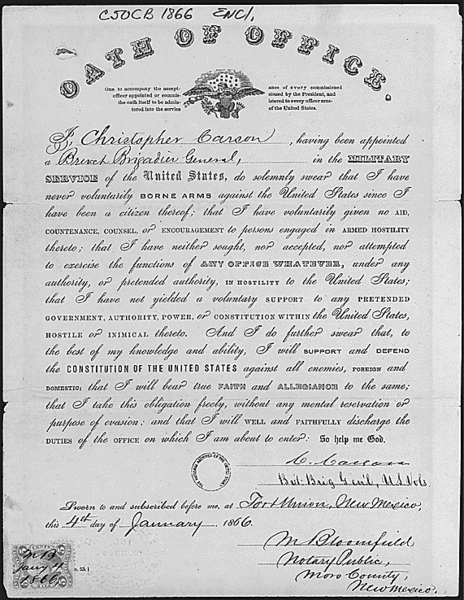 C50CB 1866 ENCl.
OATH OF OFFICE.
One to accompany the accept- ance of every commissioned
officer appointed or commis- sioned by the President, and
the oath itself to be admin- istered to every officer mus-
tered into the service of the United States.
I, Christopher Carson, having been appointed
a Brevet Brigadier General, in the MILITARY
SERVICE of the United States, do solemnly swear that I have
never voluntarily BORNE ARMS against the United States since I
have been a citizen thereof; that I have voluntarily given no AID,
COUNTENANCE, COUNSEL, or ENCOURAGEMENT to persons engaged in ARMED HOSTILITY
thereto; that I have neither sought, nor accepted, nor attempted
to exercise the functions of ANY OFFICE WHATEVER, under any
authority, or pretended authority, IN HOSTILITY to the United States;
that I have not yielded a voluntary SUPPORT to any PRETENDED
GOVERNMENT, AUTHORITY, POWER, or CONSTITUTION WITHIN the United States,
HOSTILE or INIMICAL thereto. And I do further swear that, to
the best of my knowledge and ability, I will SUPPORT and DEFEND
the CONSTITUTION OF THE UNITED STATES against all enemies, FOREIGN and
DOMESTIC; that I will bear true FAITH and ALLEGIANCE to the same;
that I take this obligation freely, without any mental reservation or
purpose of evasion; and that I will WELL and FAITHFULLY discharge the
DUTIES OF THE OFFICE on which I am about to enter: So help me God.
C. Carson
Bvt. Brig Genl, U.S. Vols
Sworn to and subscribed before me, at Fort Union, New Mexico,
this 4th day of January 1866.
M Bloomfield
Notary Public,
Moro County,
New Mexico.
M B
Jany 4
1866